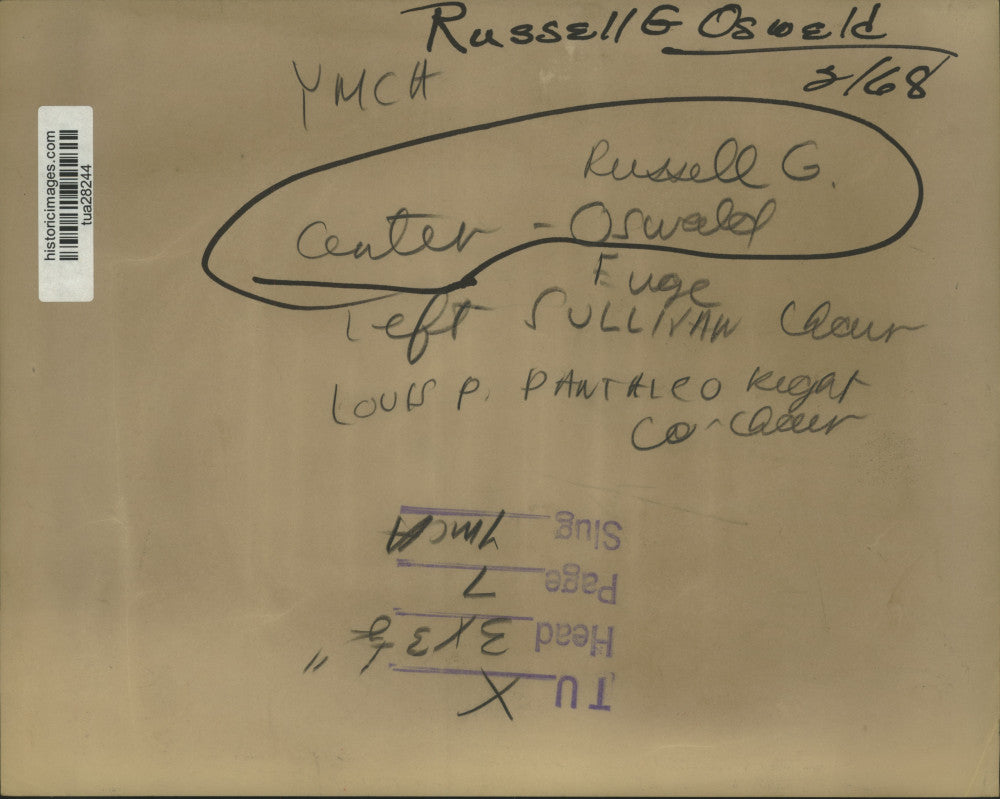 Russell G Oswald
2/68
YMCA
Russell G.
Center - Oswald
Euge
Left SULLIVAN Chair
LOUIS P. PANTALEO Right
Co-Chair
historicimages.com
tua28244
TU X
Head 3 x 3 1/2 "
Page 7
Slug YMCA